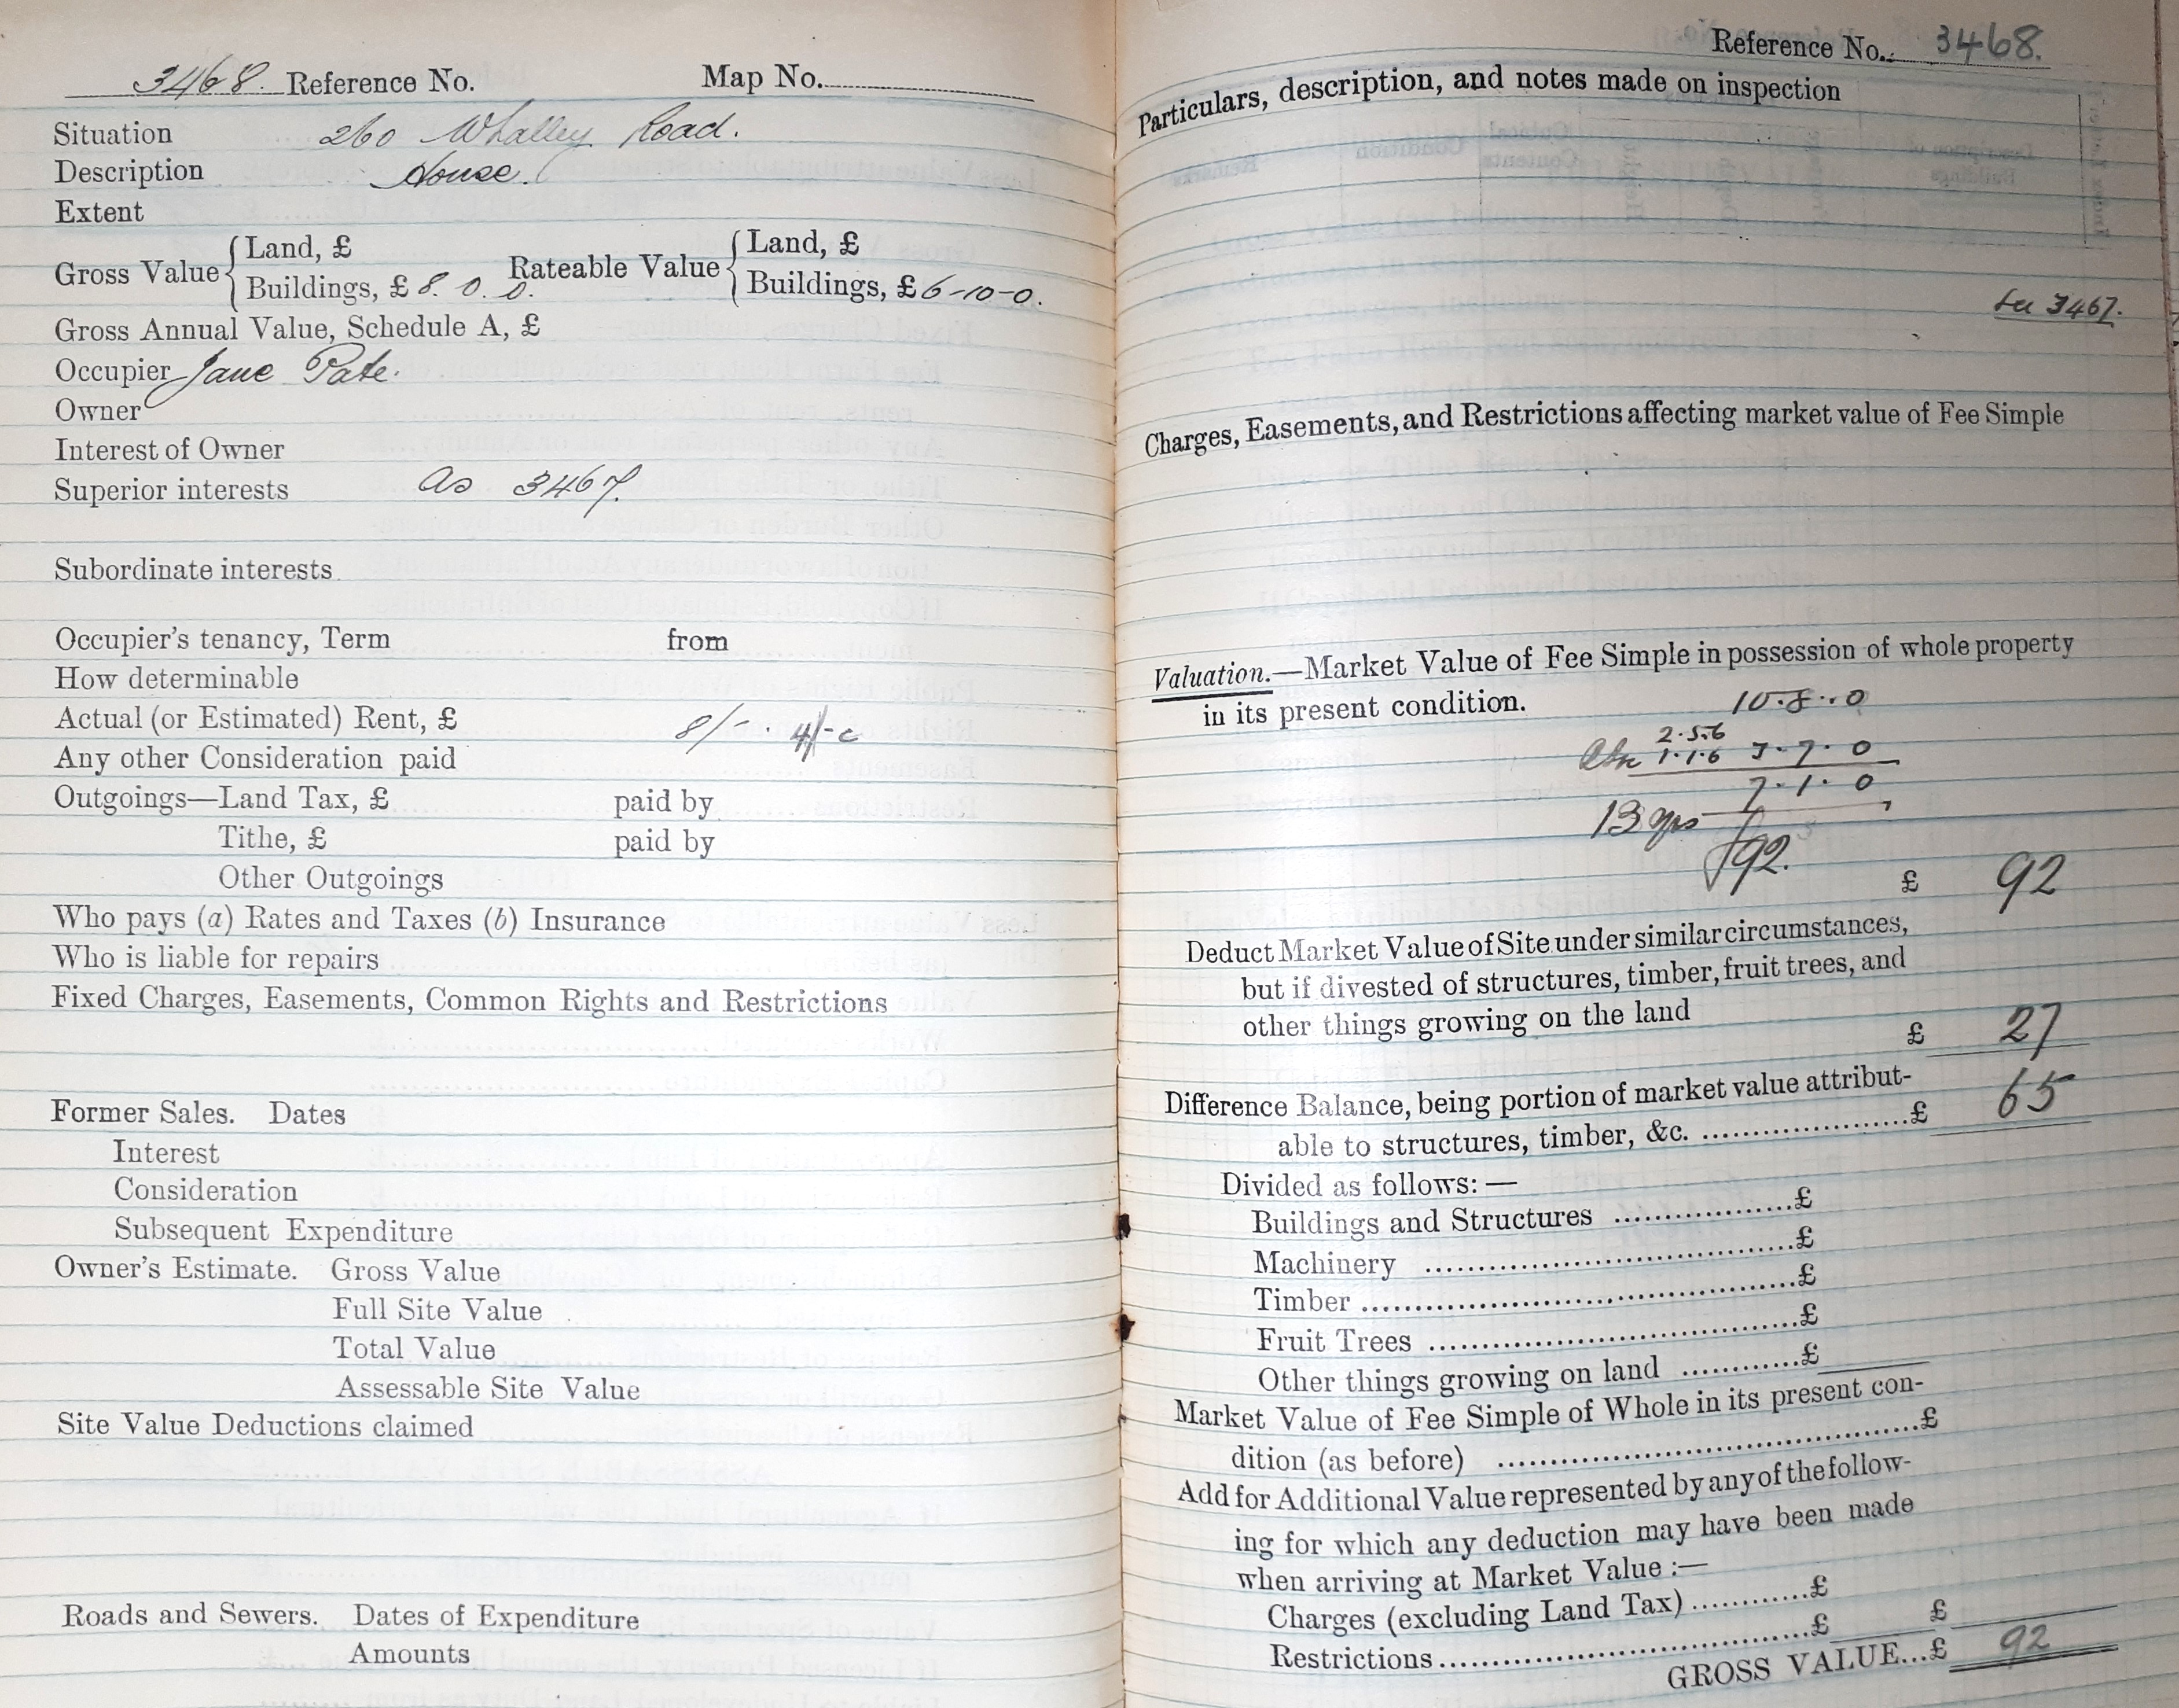 3468. Reference No. Map No.
Situation 260 Whalley Road.
Description House.
Extent
Gross Value { Land, £
Buildings, £ 8. 0. 0. Rateable Value { Land, £
Buildings, £ 6-10-0.
Gross Annual Value, Schedule A, £
Occupier Jane Pate.
Owner
Interest of Owner
Superior interests as 3467.
Subordinate interests
Occupier's tenancy, Term from
How determinable
Actual (or Estimated) Rent, £ 8/- . 4/- c
Any other Consideration paid
Outgoings—Land Tax, £ paid by
Tithe, £ paid by
Other Outgoings
Who pays (a) Rates and Taxes (b) Insurance
Who is liable for repairs
Fixed Charges, Easements, Common Rights and Restrictions
Former Sales. Dates
Interest
Consideration
Subsequent Expenditure
Owner's Estimate. Gross Value
Full Site Value
Total Value
Assessable Site Value
Site Value Deductions claimed
Roads and Sewers. Dates of Expenditure
Amounts
Reference No. 3468.
Particulars, description, and notes made on inspection
See 3467.
Charges, Easements, and Restrictions affecting market value of Fee Simple
Valuation.—Market Value of Fee Simple in possession of whole property
in its present condition.
10.8.0
2.5.6
1.1.6 3.7.0
7.1.0
13 yrs
£92.
£ 92
Deduct Market Value of Site under similar circumstances,
but if divested of structures, timber, fruit trees, and
other things growing on the land
£ 27
Difference Balance, being portion of market value attribut-
able to structures, timber, &c. £ 65
Divided as follows:—
Buildings and Structures £
Machinery £
Timber £
Fruit Trees £
Other things growing on land £
Market Value of Fee Simple of Whole in its present con-
dition (as before) £
Add for Additional Value represented by any of the follow-
ing for which any deduction may have been made
when arriving at Market Value :—
Charges (excluding Land Tax) £
Restrictions £ £
GROSS VALUE...£ 92